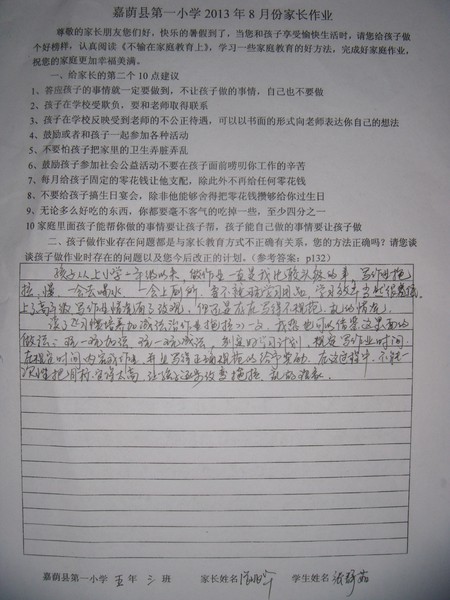 嘉荫县第一小学 2013 年 8 月份家长作业
尊敬的家长朋友您们好，快乐的暑假到了，当您和孩子享受愉快生活时，请您给孩子做
个好榜样，认真阅读《不输在家庭教育上》，学习一些家庭教育的好方法，完成好家庭作业，
祝您的家庭更加幸福美满。
一、给家长的第二个 10 点建议
1、答应孩子的事情就一定要做到，不让孩子做的事情，自己也不要做
2、孩子在学校受欺负，要和老师取得联系
3、孩子在学校反映受到老师的不公正待遇，可以以书面的形式向老师表达你自己的想法
4、鼓励或者和孩子一起参加各种活动
5、不要怕孩子把家里的卫生弄脏弄乱
6、鼓励孩子参加社会公益活动不要在孩子面前唠叨你工作的辛苦
7、每月给孩子固定的零花钱让他支配，除此外不再给任何零花钱
8、不要给孩子搞生日宴会，除非他能够舍得把零花钱攒够给你过生日
9、无论多么好吃的东西，你都要毫不客气的吃掉一些，至少四分之一
10 家庭里面孩子能帮你做的事情要让孩子帮，孩子能自己做的事情要让孩子做
二、孩子做作业存在问题都是与家长教育方式不正确有关系，您的方法正确吗？请您谈
谈孩子做作业时存在的问题以及您今后改正的计划。（参考答案：p132）
孩子从上小学一年级以来，做作业一直是我比较头疼的事，写作业拖
拉、慢、一会去喝水、一会上厕所
上了高年级写作业情况有了改观，但还是存在写得不规范、乱的情况。
读了
做法：
在规定时间内完成作业，并且写得正确规范的给予奖励，在这过程中，不能一
次性把目标定得太高，让孩子逐步改变拖拉、乱的现象。
嘉荫县第一小学 五 年 三 班 家长姓名 学生姓名 张